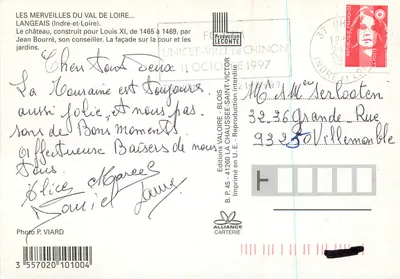 LES MERVEILLES DU VAL DE LOIRE...
LANGEAIS (Indre-et-Loire).
Le château, construit pour Louis XI, de 1465 à 1469, par
Jean Bourré, son conseiller. La façade sur la bour et les
jardins.
Chers tous deux.
La Touraine est toujours
aussi jolie, et nous pas
sons de Bons Moments.
Affectueux Baisers de nous
Tous.
Alice Marcel
Daniel Laure
Photo P. VIARD
3 557020 101004
Production
LECONTE
Editions VALOIRE - BLOIS
B.P. 45 - 41260 LA CHAUSSÉE-SAINT-VICTOR
Imprimé en U.E. - Reproduction interdite
ALLIANCE
CARTERIE
UNICEF-VILLE de CHINON
OCTOBRE 1997
Mr & Me Serlooten
32.36 Grande Rue
93250 Villemomble